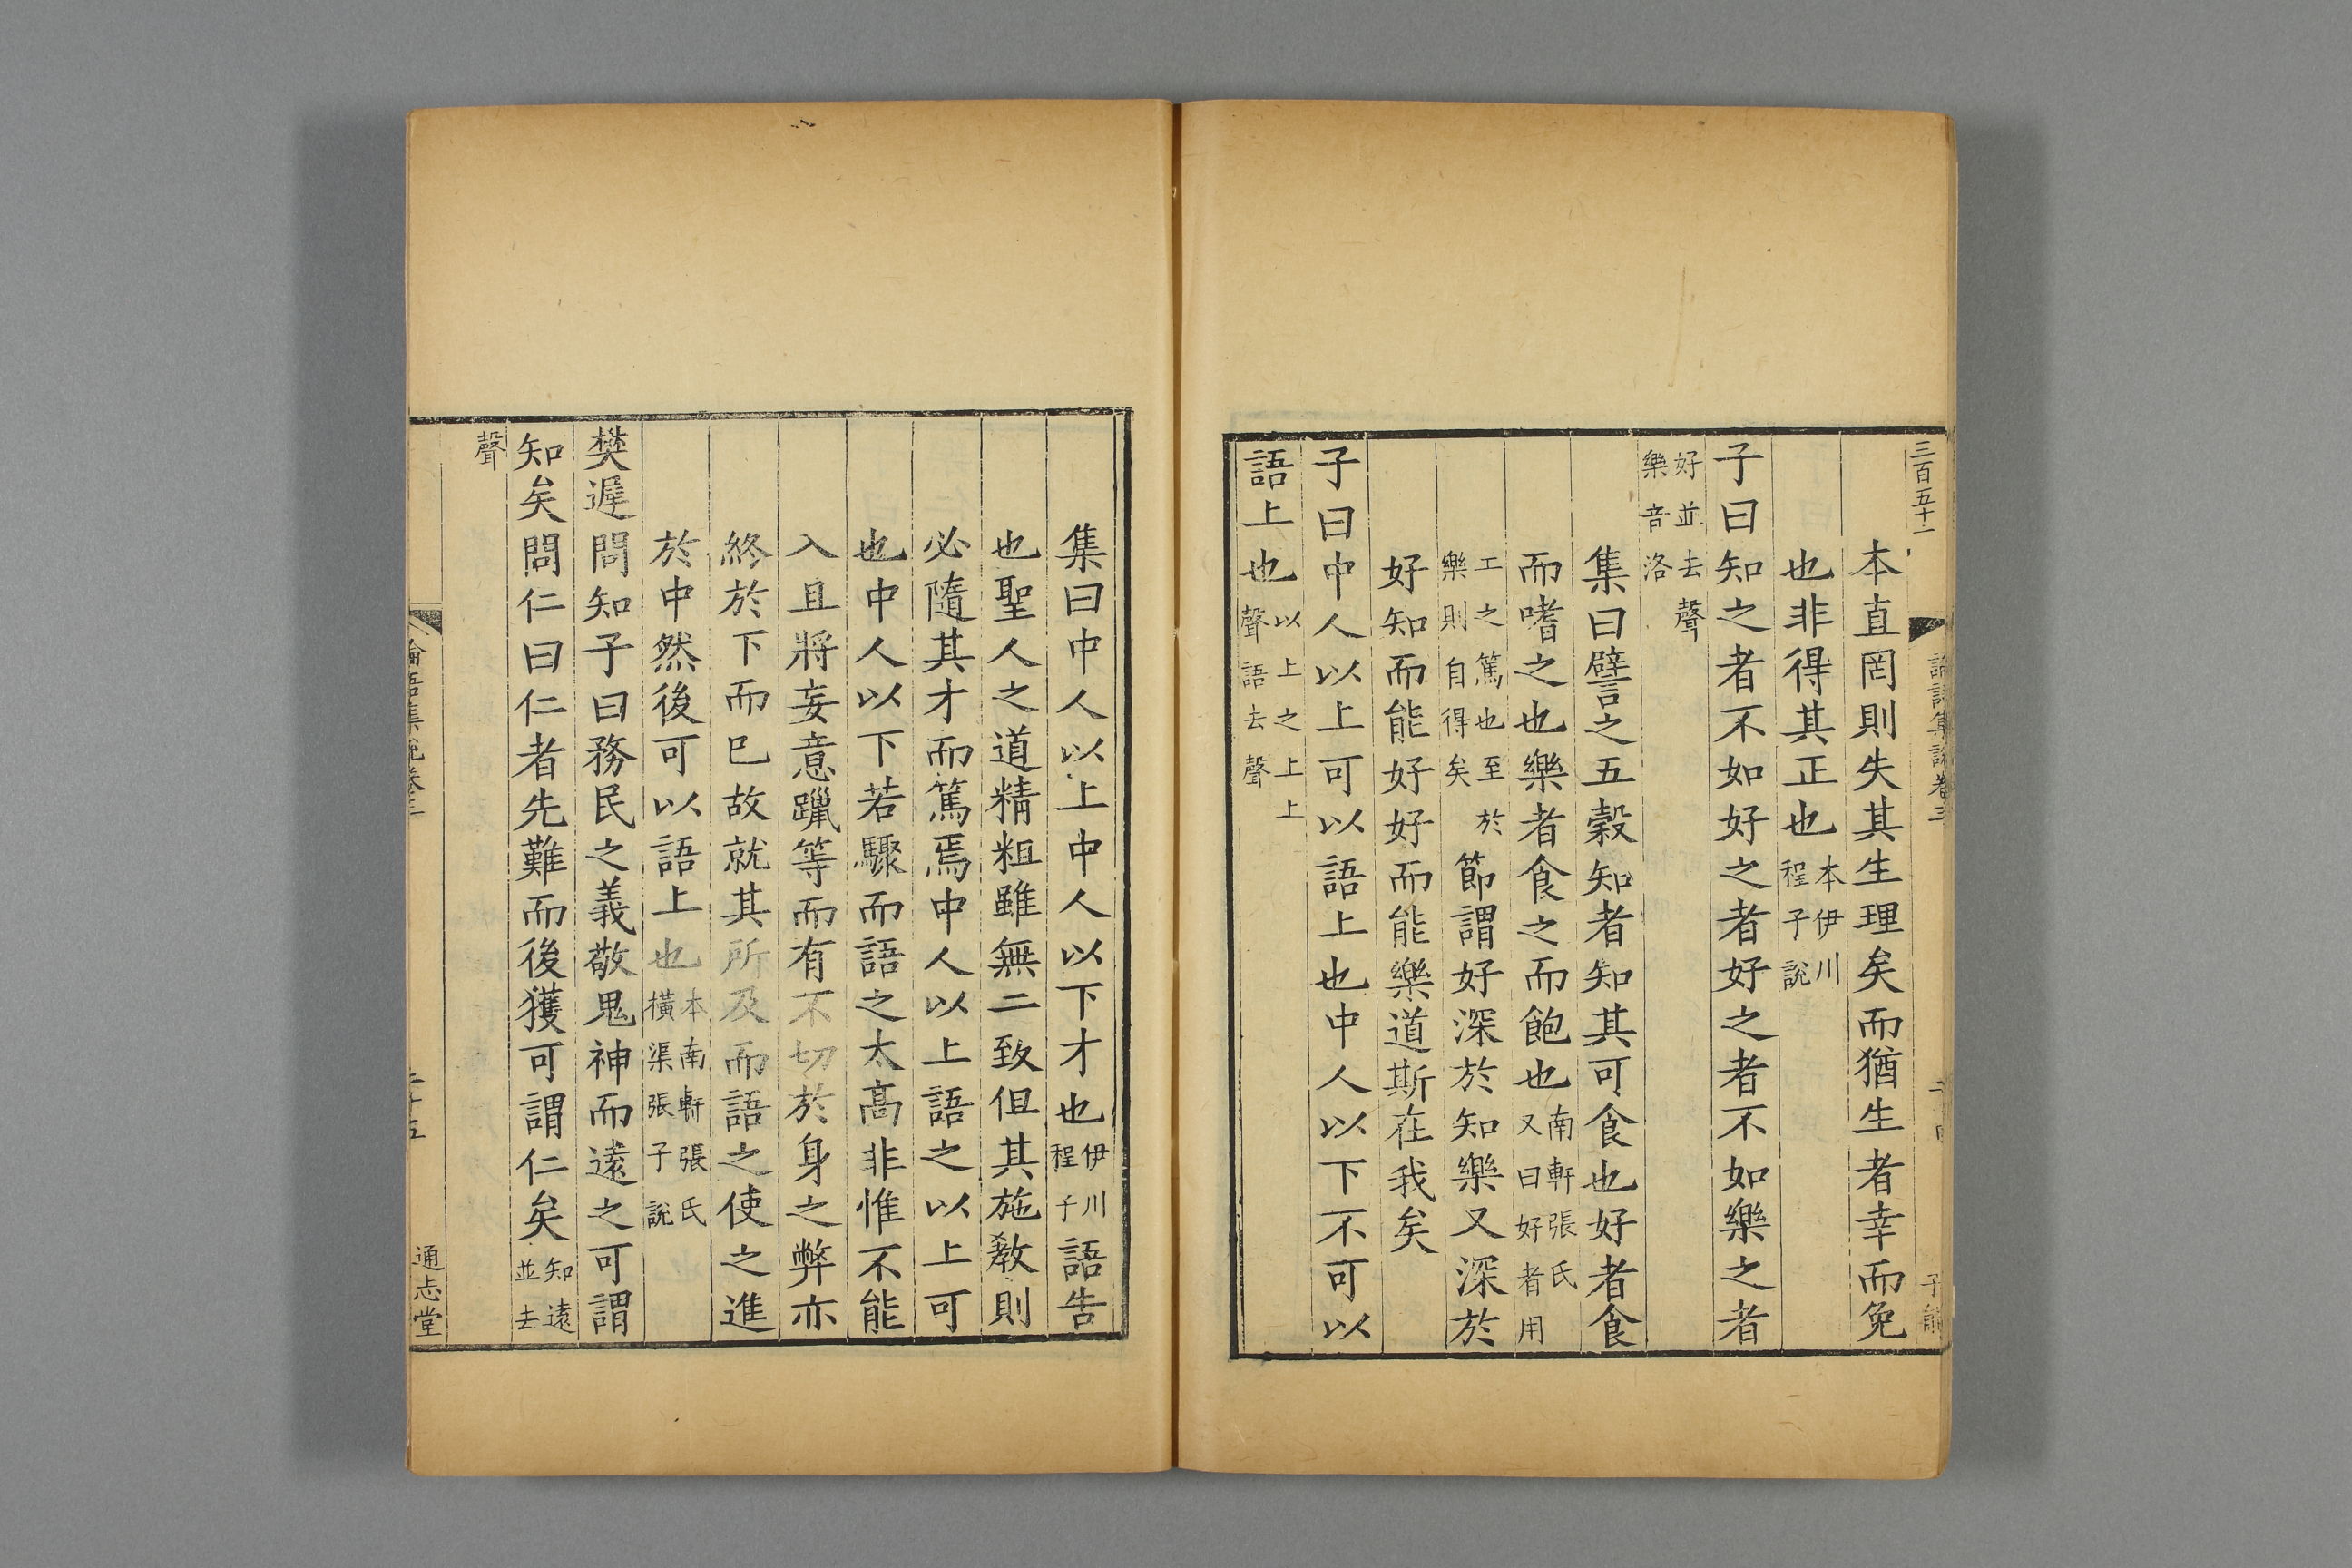 三百五十一
論語集說卷三
本直罔則失其生理矣而猶生者幸而免
也非得其正也本伊川程子說
子曰知之者不如好之者好之者不如樂之者
好並去聲樂音洛
集曰譬之五穀知者知其可食也好者食
而嗜之也樂者食之而飽也南軒張氏又曰好者用
工之篤也至於樂則自得矣節謂好深於知樂又深於
好知而能好好而能樂道斯在我矣
子曰中人以上可以語上也中人以下不可以
語上也以上之上上聲語去聲
集曰中人以上中人以下才也伊川程子語告
也聖人之道精粗雖無二致但其施教則
必隨其才而篤焉中人以上語之以上可
也中人以下若驟而語之太高非惟不能
入且將妄意躐等而有不切於身之弊亦
終於下而已故就其所及而語之使之進
於中然後可以語上也本南軒張氏橫渠張子說
樊遲問知子曰務民之義敬鬼神而遠之可謂
知矣問仁曰仁者先難而後獲可謂仁矣知遠並去
聲
論語集說卷三
二十五
通志堂